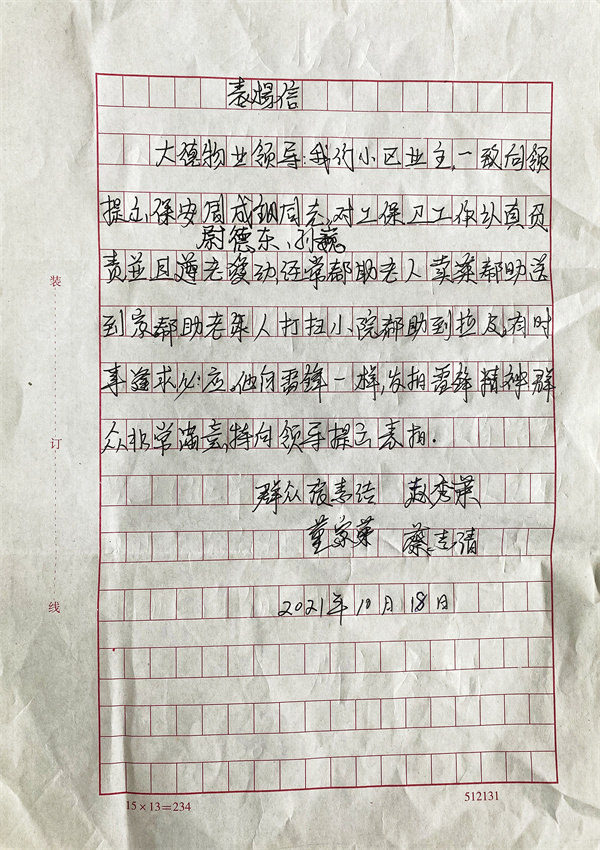 表揚信
大德物业领导:我们小区业主,一致向领
提出保安周成钢同志,对工保卫工作认真负
尉德东、孙巍。
责並且尊老爱幼,经常都助老人卖菜都助送
到家,都助老年人打扫小院都助到拉及,有时
事逢求必应。他向雷锋一样,发拍雷锋精神群
众非常满意,特向领导提出表拍.
群众 赵秀荣
董家荣 蔡志清
2021年10月18日
装
订
线
15×13=234
512131